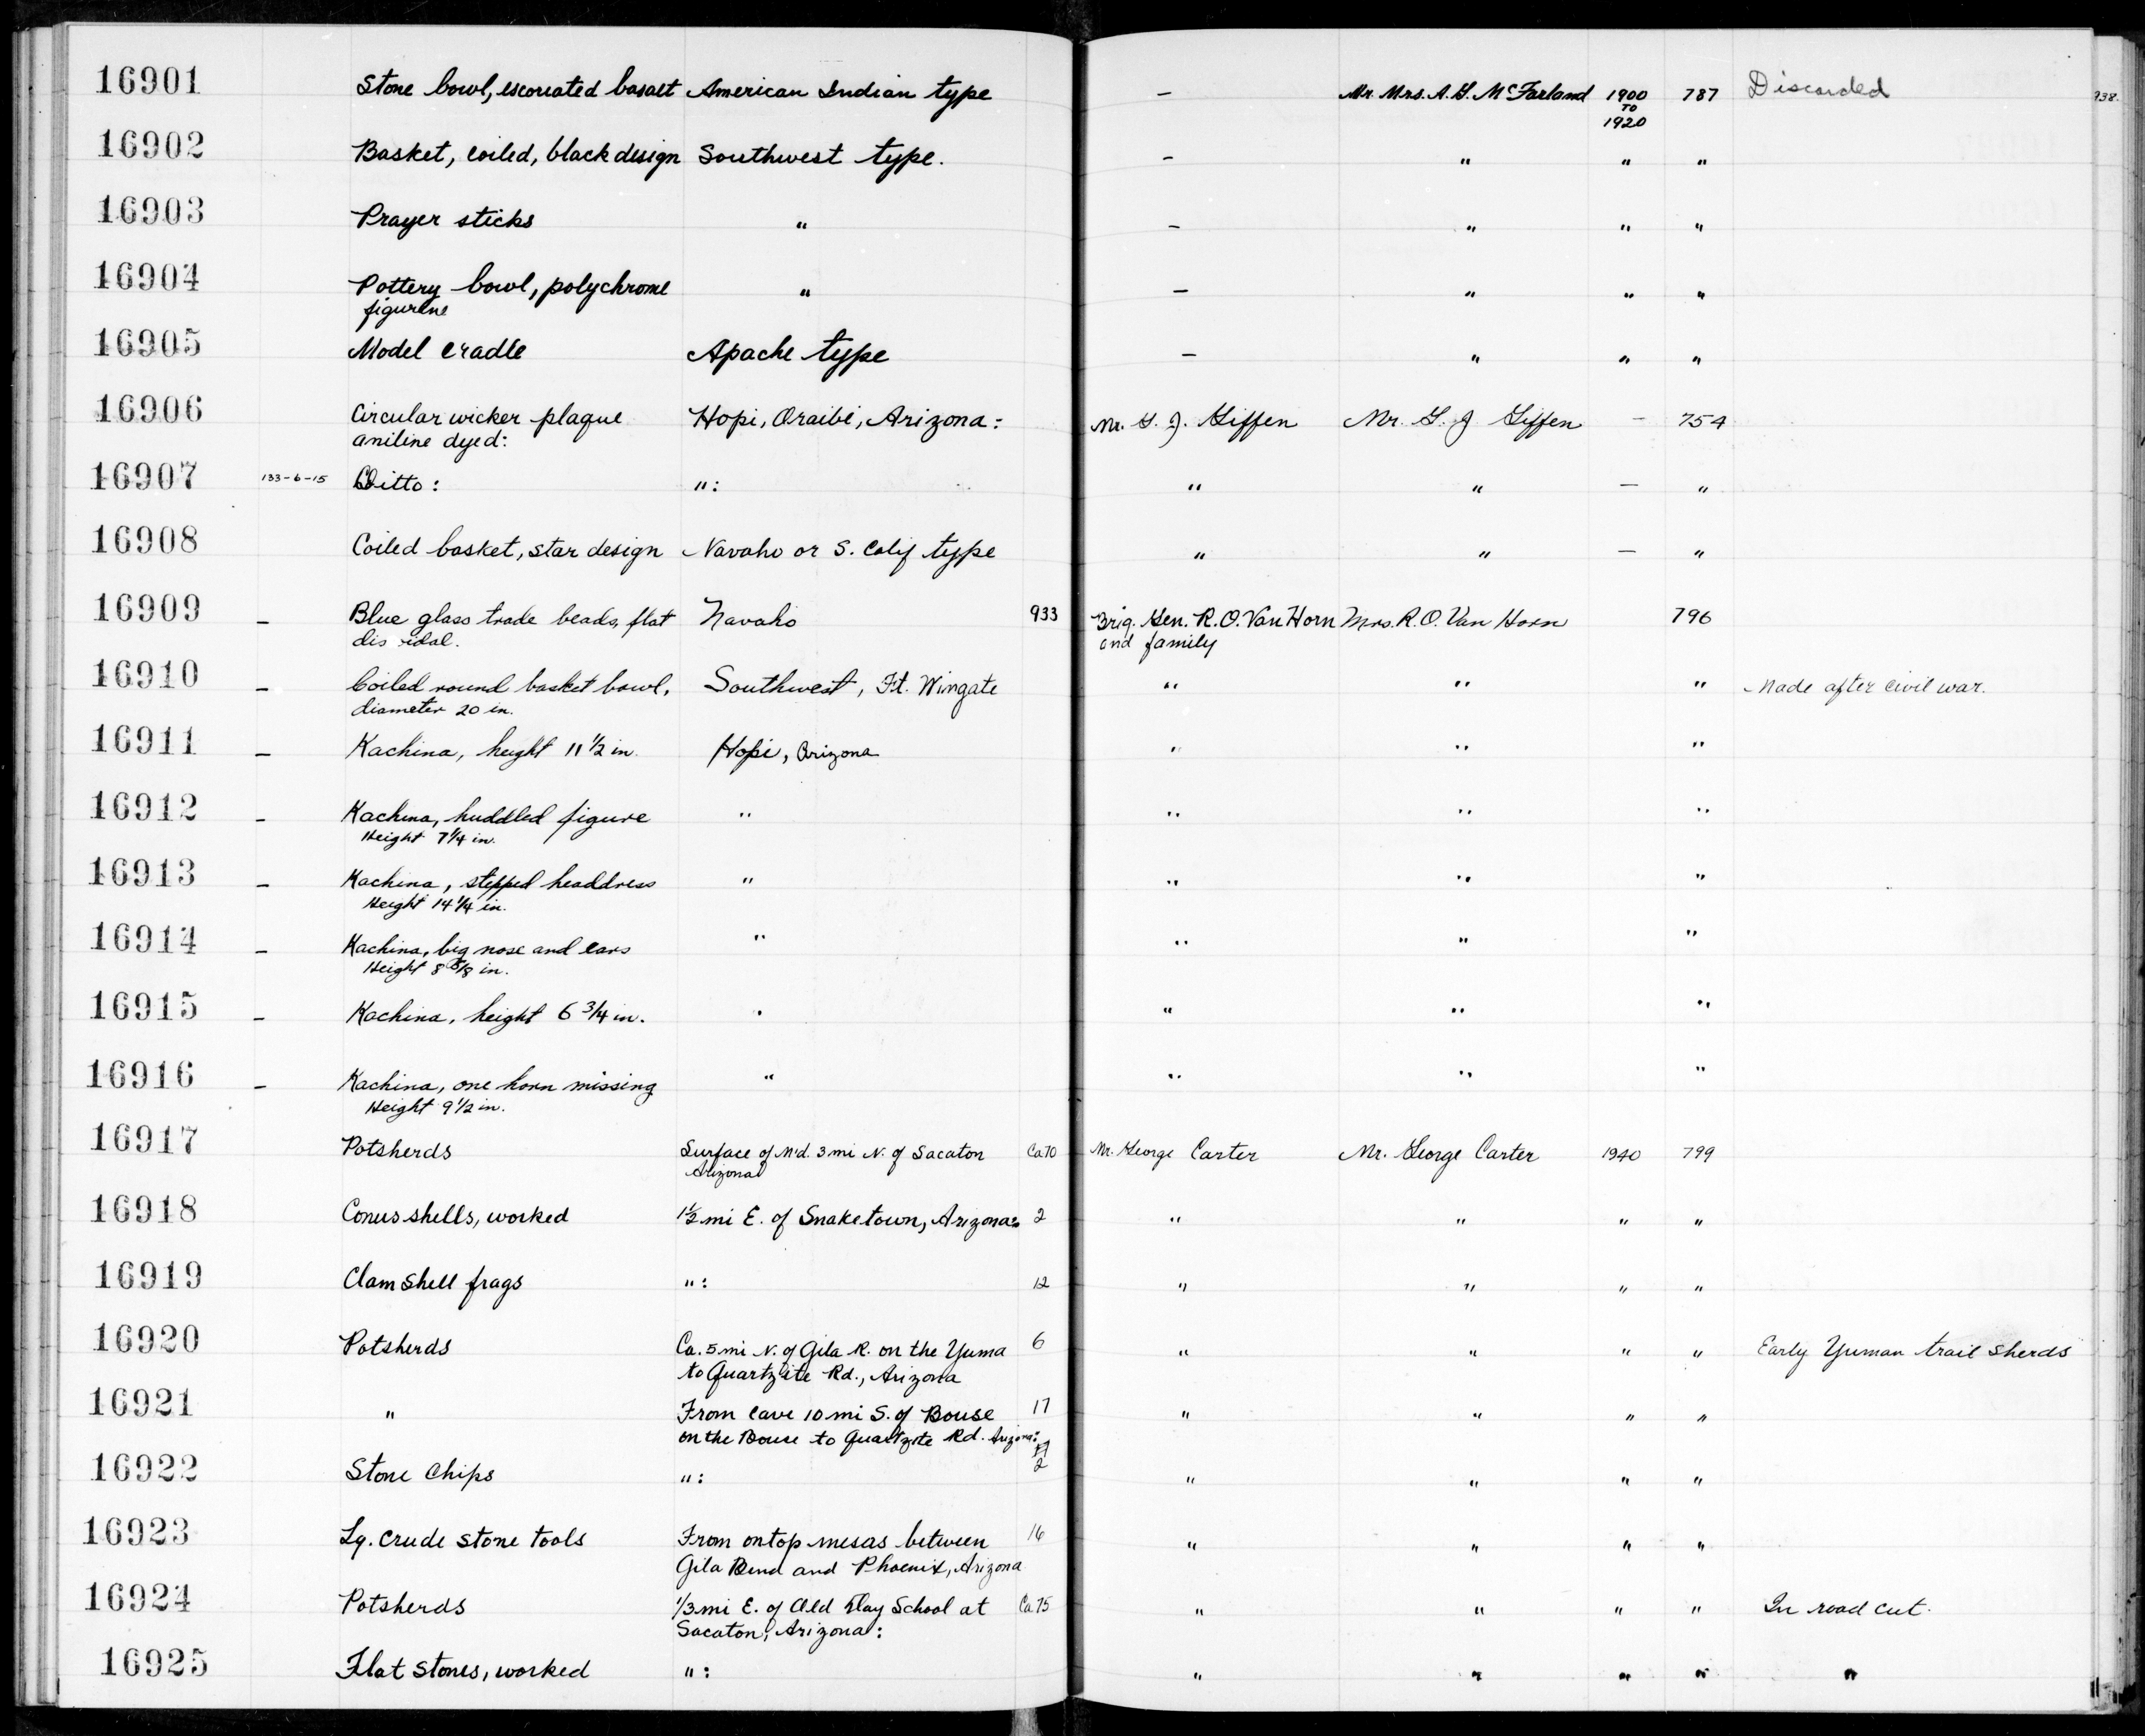 16901 Stone bowl, escoriated basalt American Indian type - Mr. Mrs. A. G. McFarland 1900 TO 1920 787 Discarded 938.
16902 Basket, coiled, black design Southwest type. - " " "
16903 Prayer sticks " - " " "
16904 Pottery bowl, polychrome figurine " - " " "
16905 Model cradle Apache type - " " "
16906 Circular wicker plaque aniline dyed: Hopi, Oraibi, Arizona: Mr. G. J. Giffen Mr. G. J Giffen - 754
16907 133-6-15 Ditto: ": " " - "
16908 Coiled basket, star design Navaho or S. Calif type " " - "
16909 - Blue glass trade beads, flat dis oidal. Navaho 933 Brig. Gen. R. O. Van Horn and family Mrs. R. O. Van Horn 796
16910 - Coiled round basket bowl, diameter 20 in. Southwest, Ft. Wingate " " " Made after civil war.
16911 - Kachina, height 11 1/2 in. Hopi, Arizona " " "
16912 - Kachina, huddled figure Height 7 1/4 in. " " " "
16913 - Kachina, stepped headdress Height 14 1/4 in. " " " "
16914 - Kachina, big nose and ears Height 8 5/8 in. " " " "
16915 - Kachina, height 6 3/4 in. " " " "
16916 - Kachina, one horn missing Height 9 1/2 in. " " " "
16917 Potsherds Surface of M'd. 3 mi N. of Sacaton Arizona Ca 70 Mr. George Carter Mr. George Carter 1940 799
16918 Conus shells, worked 1 1/2 mi E. of Snaketown, Arizona: 2 " " " "
16919 Clam shell frags ": 12 " " " "
16920 Potsherds Ca. 5 mi N. of Gila R. on the Yuma to Quartzite Rd., Arizona 6 " " " " Early Yuman trail sherds
16921 " From cave 10 mi S. of Bouse on the Bouse to Quartzite Rd. Arizona: 17 " " " "
16922 Stone chips ": 2 " " " "
16923 Lg. crude stone tools From on top mesas between Gila Bend and Phoenix, Arizona 16 " " " "
16924 Potsherds 1/3 mi E. of Old Day School at Sacaton, Arizona: Ca 75 " " " " In road cut.
16925 Flat stones, worked ": " " " " "